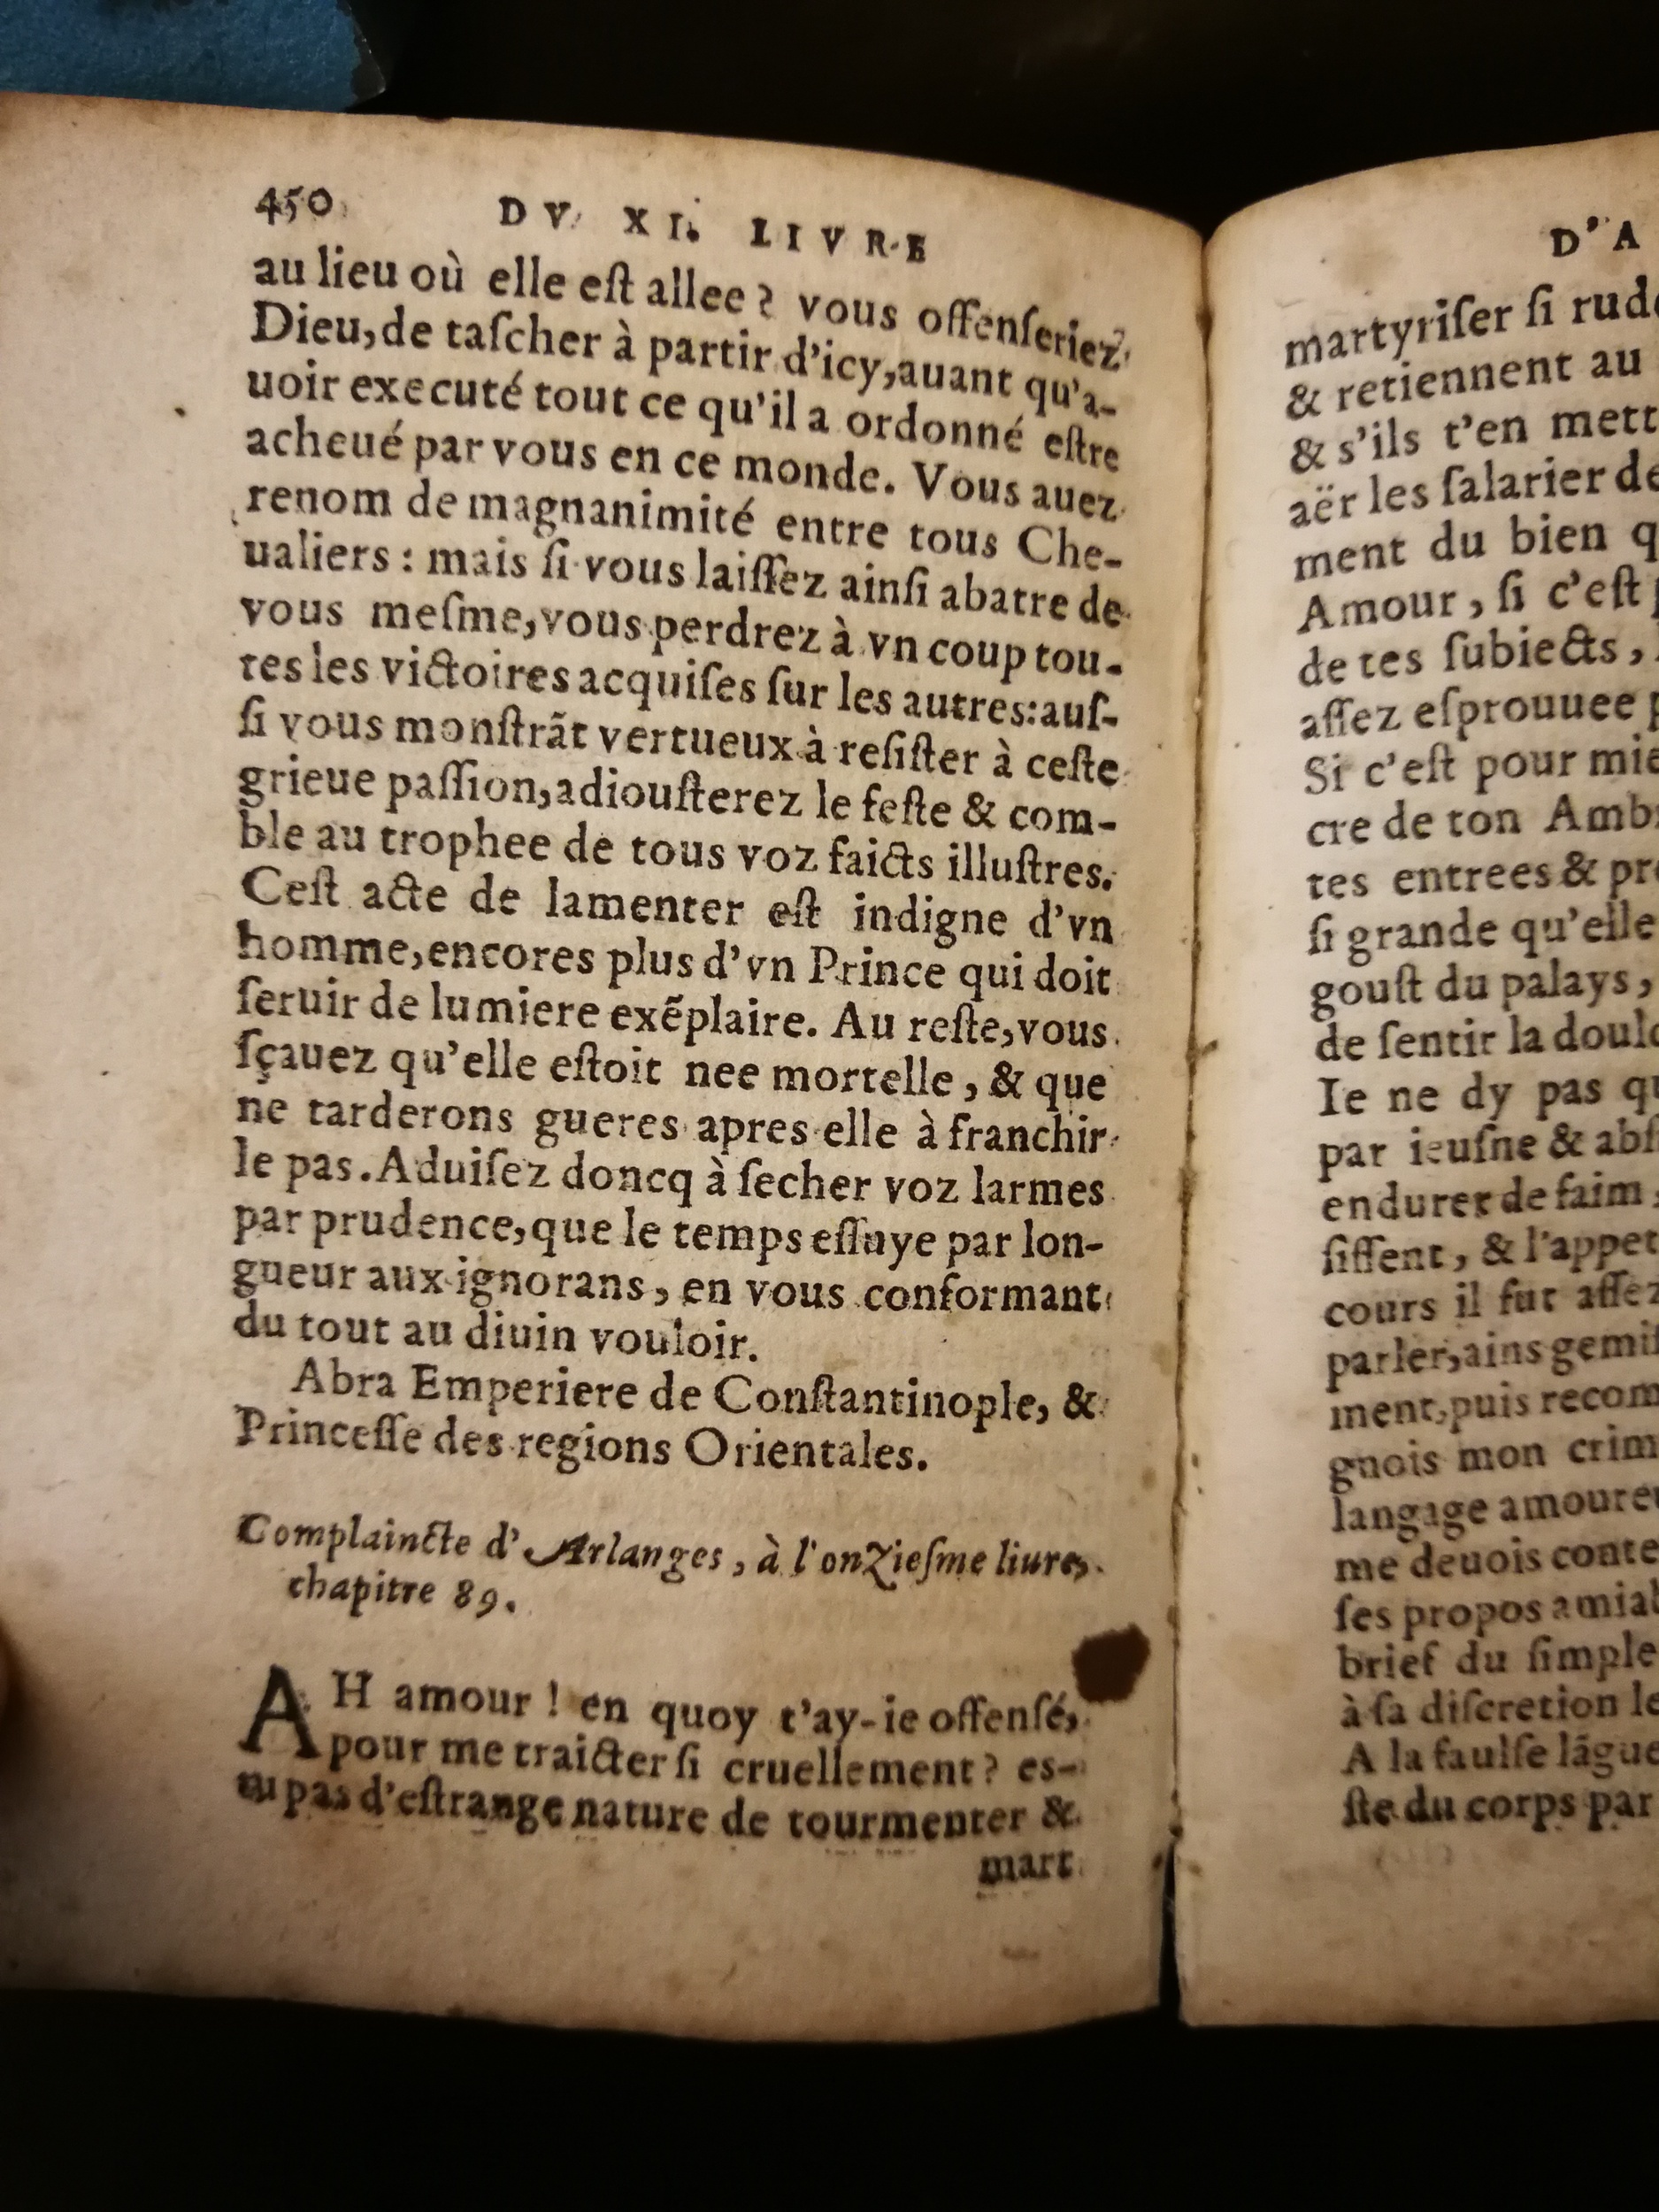 450 DV XI. LIVRE
au lieu où elle eſt allee? vous offenſeriez
Dieu, de taſcher à partir d'icy, auant qu'a-
uoir executé tout ce qu'il a ordonné eſtre
acheué par vous en ce monde. Vous auez
renom de magnanimité entre tous Che-
ualiers : mais ſi vous laiſſez ainſi abatre de
vous meſme, vous perdrez à vn coup tou-
tes les victoires acquiſes ſur les autres: auſ-
ſi vous monſtrãt vertueux à reſiſter à ceſte
grieue paſſion, adiouſterez le feſte & com-
ble au trophee de tous voz faicts illuſtres.
Ceſt acte de lamenter eſt indigne d'vn
homme, encores plus d'vn Prince qui doit
ſeruir de lumiere exẽplaire. Au reſte, vous
ſçauez qu'elle eſtoit nee mortelle, & que
ne tarderons gueres apres elle à franchir
le pas. Aduiſez doncq à ſecher voz larmes
par prudence, que le temps eſſuye par lon-
gueur aux ignorans, en vous conformant
du tout au diuin vouloir.
Abra Emperiere de Conſtantinople, &
Princeſſe des regions Orientales.
Complaincte d'Arlanges, à l'onzieſme liure,
chapitre 89.
AH amour ! en quoy t'ay-ie offenſé,
pour me traicter ſi cruellement? es-
tu pas d'eſtrange nature de tourmenter &
mart
D'A
martyriſer ſi rud
& retiennent au
& s'ils t'en mett
aër les ſalarier de
ment du bien q
Amour, ſi c'eſt
de tes ſubiects,
aſſez eſprouuee p
Si c'eſt pour mie
cre de ton Amb
tes entrees & pr
ſi grande qu'elle
gouſt du palays,
de ſentir la doulc
Ie ne dy pas qu
par ieuſne & abſ
endurer de faim,
ſiſſent, & l'appet
cours il fut aſſez
parler, ains gemiſ
ment, puis recom
gnois mon crim
langage amoureu
me deuois conte
ſes propos amiab
brief du ſimple
à ſa diſcretion le
A la faulſe lãgue
ſte du corps par